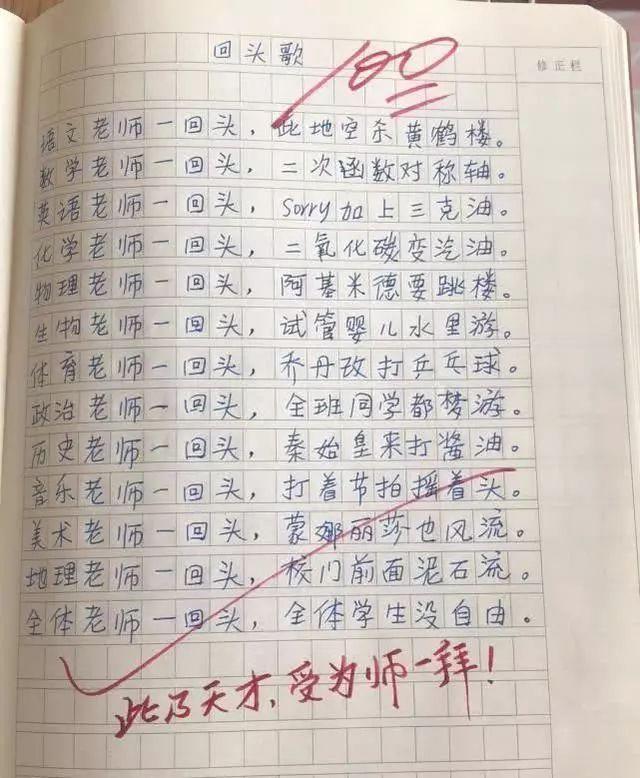 回头歌
100
修正栏
语文老师一回头，此地空杀黄鹤楼。
数学老师一回头，二次函数对称轴。
英语老师一回头，Sorry加上三克油。
化学老师一回头，二氧化碳变汽油。
物理老师一回头，阿基米德要跳楼。
生物老师一回头，试管婴儿水里游。
体育老师一回头，乔丹改打乒乓球。
政治老师一回头，全班同学都梦游。
历史老师一回头，秦始皇来打酱油。
音乐老师一回头，打着节拍摇着头。
美术老师一回头，蒙娜丽莎也风流。
地理老师一回头，校门前面泥石流。
全体老师一回头，全体学生没自由。
此乃天才，受为师一拜！